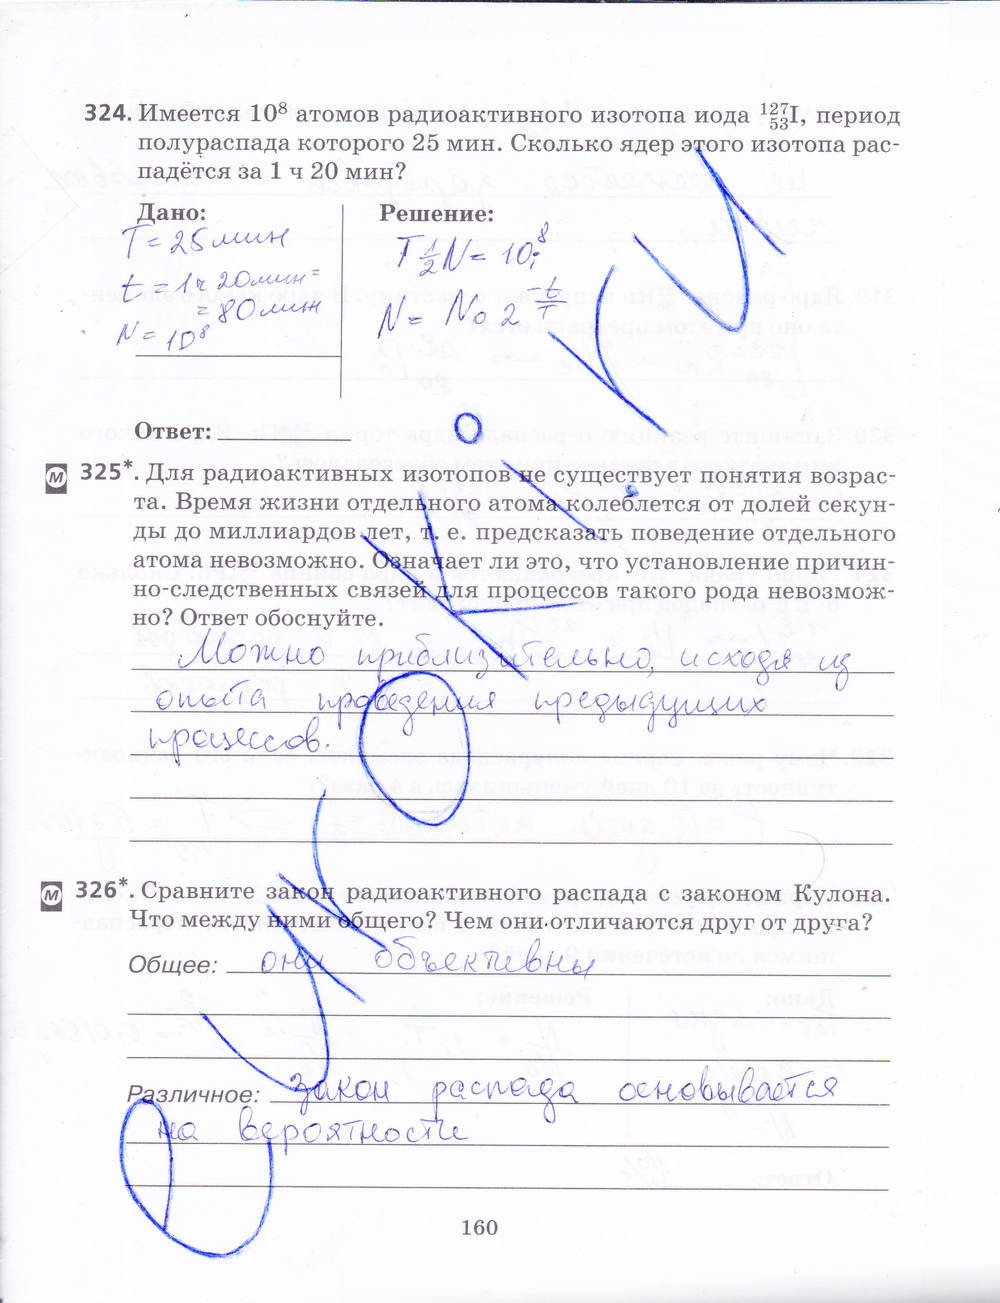 324. Имеется 10⁸ атомов радиоактивного изотопа иода ¹²⁷₅₃I, период
полураспада которого 25 мин. Сколько ядер этого изотопа рас-
падётся за 1 ч 20 мин?
Дано:
T = 25 мин
t = 1ч 20мин =
= 80 мин
N = 10⁸
Решение:
T ½ N = 10⁸;
N = N₀ 2^(-t/T)
Ответ:
М 325*. Для радиоактивных изотопов не существует понятия возрас-
та. Время жизни отдельного атома колеблется от долей секун-
ды до миллиардов лет, т. е. предсказать поведение отдельного
атома невозможно. Означает ли это, что установление причин-
но-следственных связей для процессов такого рода невозмож-
но? Ответ обоснуйте.
Можно приблизительно, исходя из
опыта проведения предыдущих
процессов.
М 326*. Сравните закон радиоактивного распада с законом Кулона.
Что между ними общего? Чем они отличаются друг от друга?
Общее: они объективны
Различное: закон распада основывается
на вероятности
160